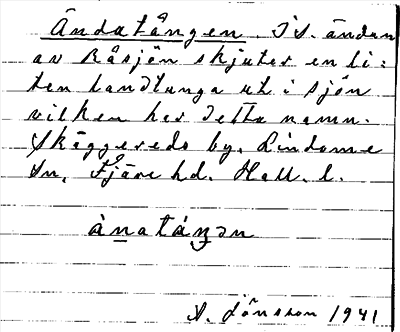 Ändatången. I S. ändan
av Råsjön skjuter en li=
ten landtunga ut i sjön
vilken har detta namn.
Skäggered by. Lindome
Sn, Fjäre hd. Hall. l.
ànatáŋən
A. Jönsson 1941